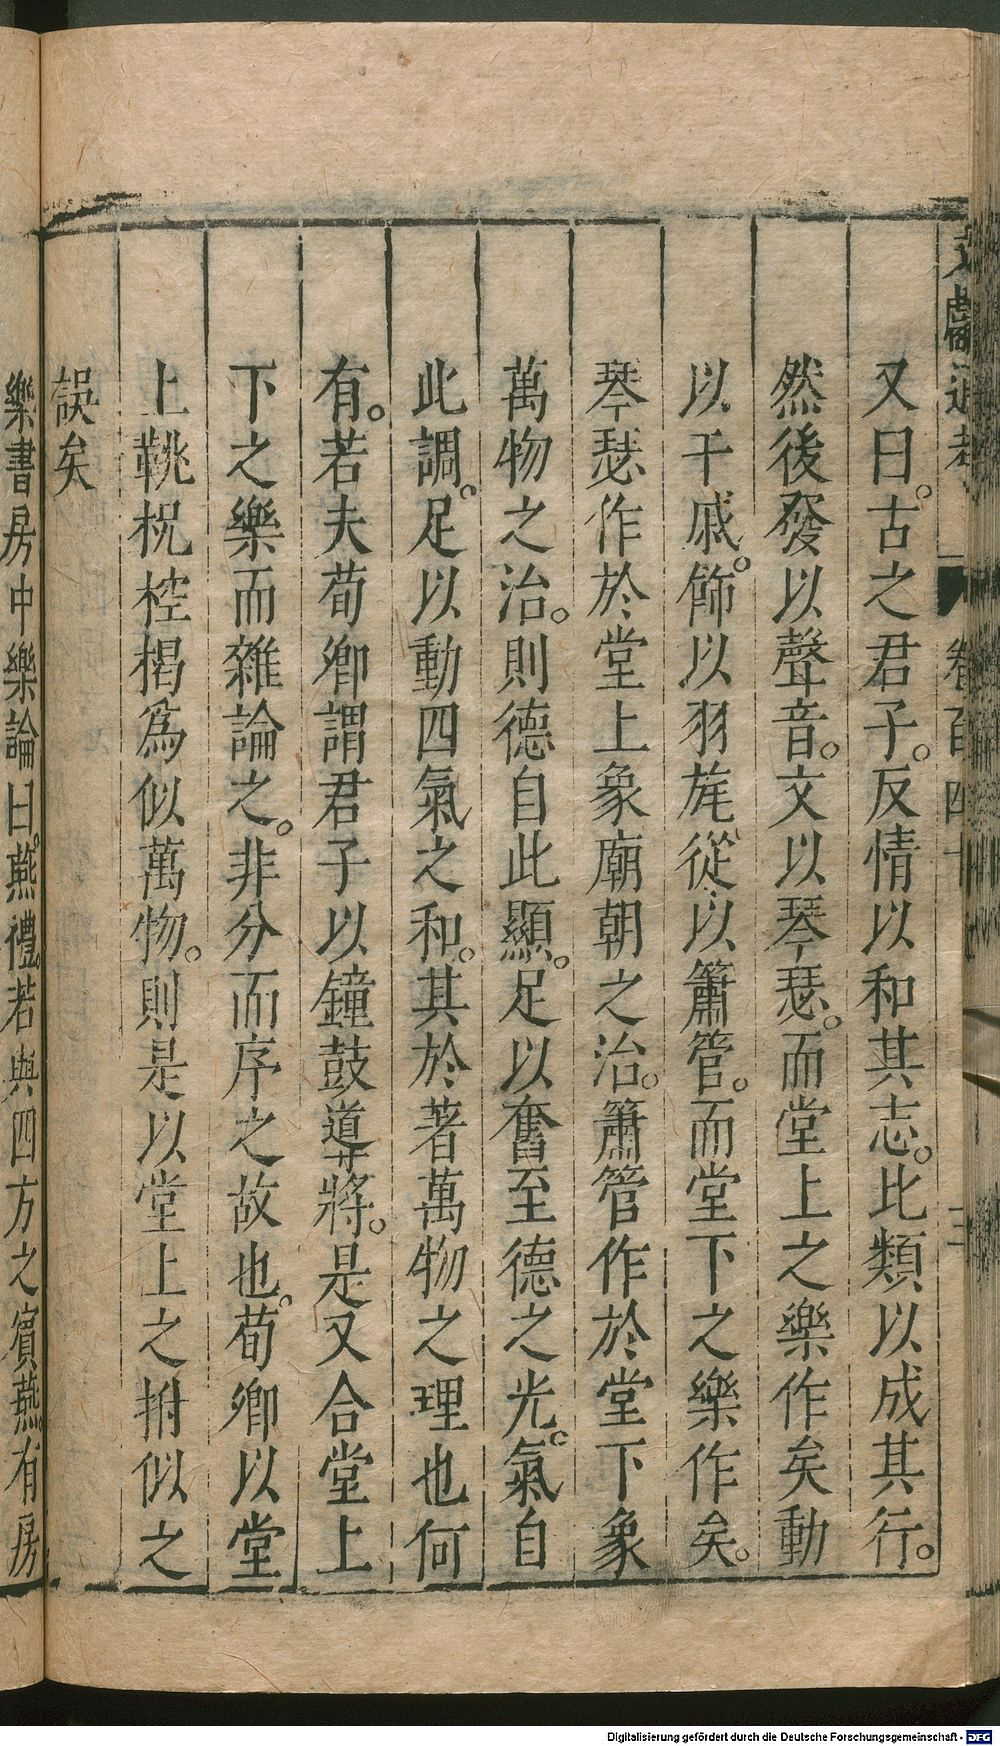 文獻通考 卷百四十 三
又曰。古之君子。反情以和其志。比類以成其行。
然後發以聲音。文以琴瑟。而堂上之樂作矣動
以干戚。飾以羽旄從以簫管。而堂下之樂作矣。
琴瑟作於堂上象廟朝之治。簫管作於堂下象
萬物之治。則德自此顯。足以奮至德之光。氣自
此調。足以動四氣之和。其於著萬物之理也何
有。若夫荀卿謂君子以鐘鼓導將。是又合堂上
下之樂而雜論之。非分而序之故也。荀卿以堂
上鞉柷椌楬爲似萬物。則是以堂上之拊似之
誤矣
樂書房中樂論曰。燕禮。若與四方之賓燕。有房
Digitalisierung gefördert durch die Deutsche Forschungsgemeinschaft - DFG